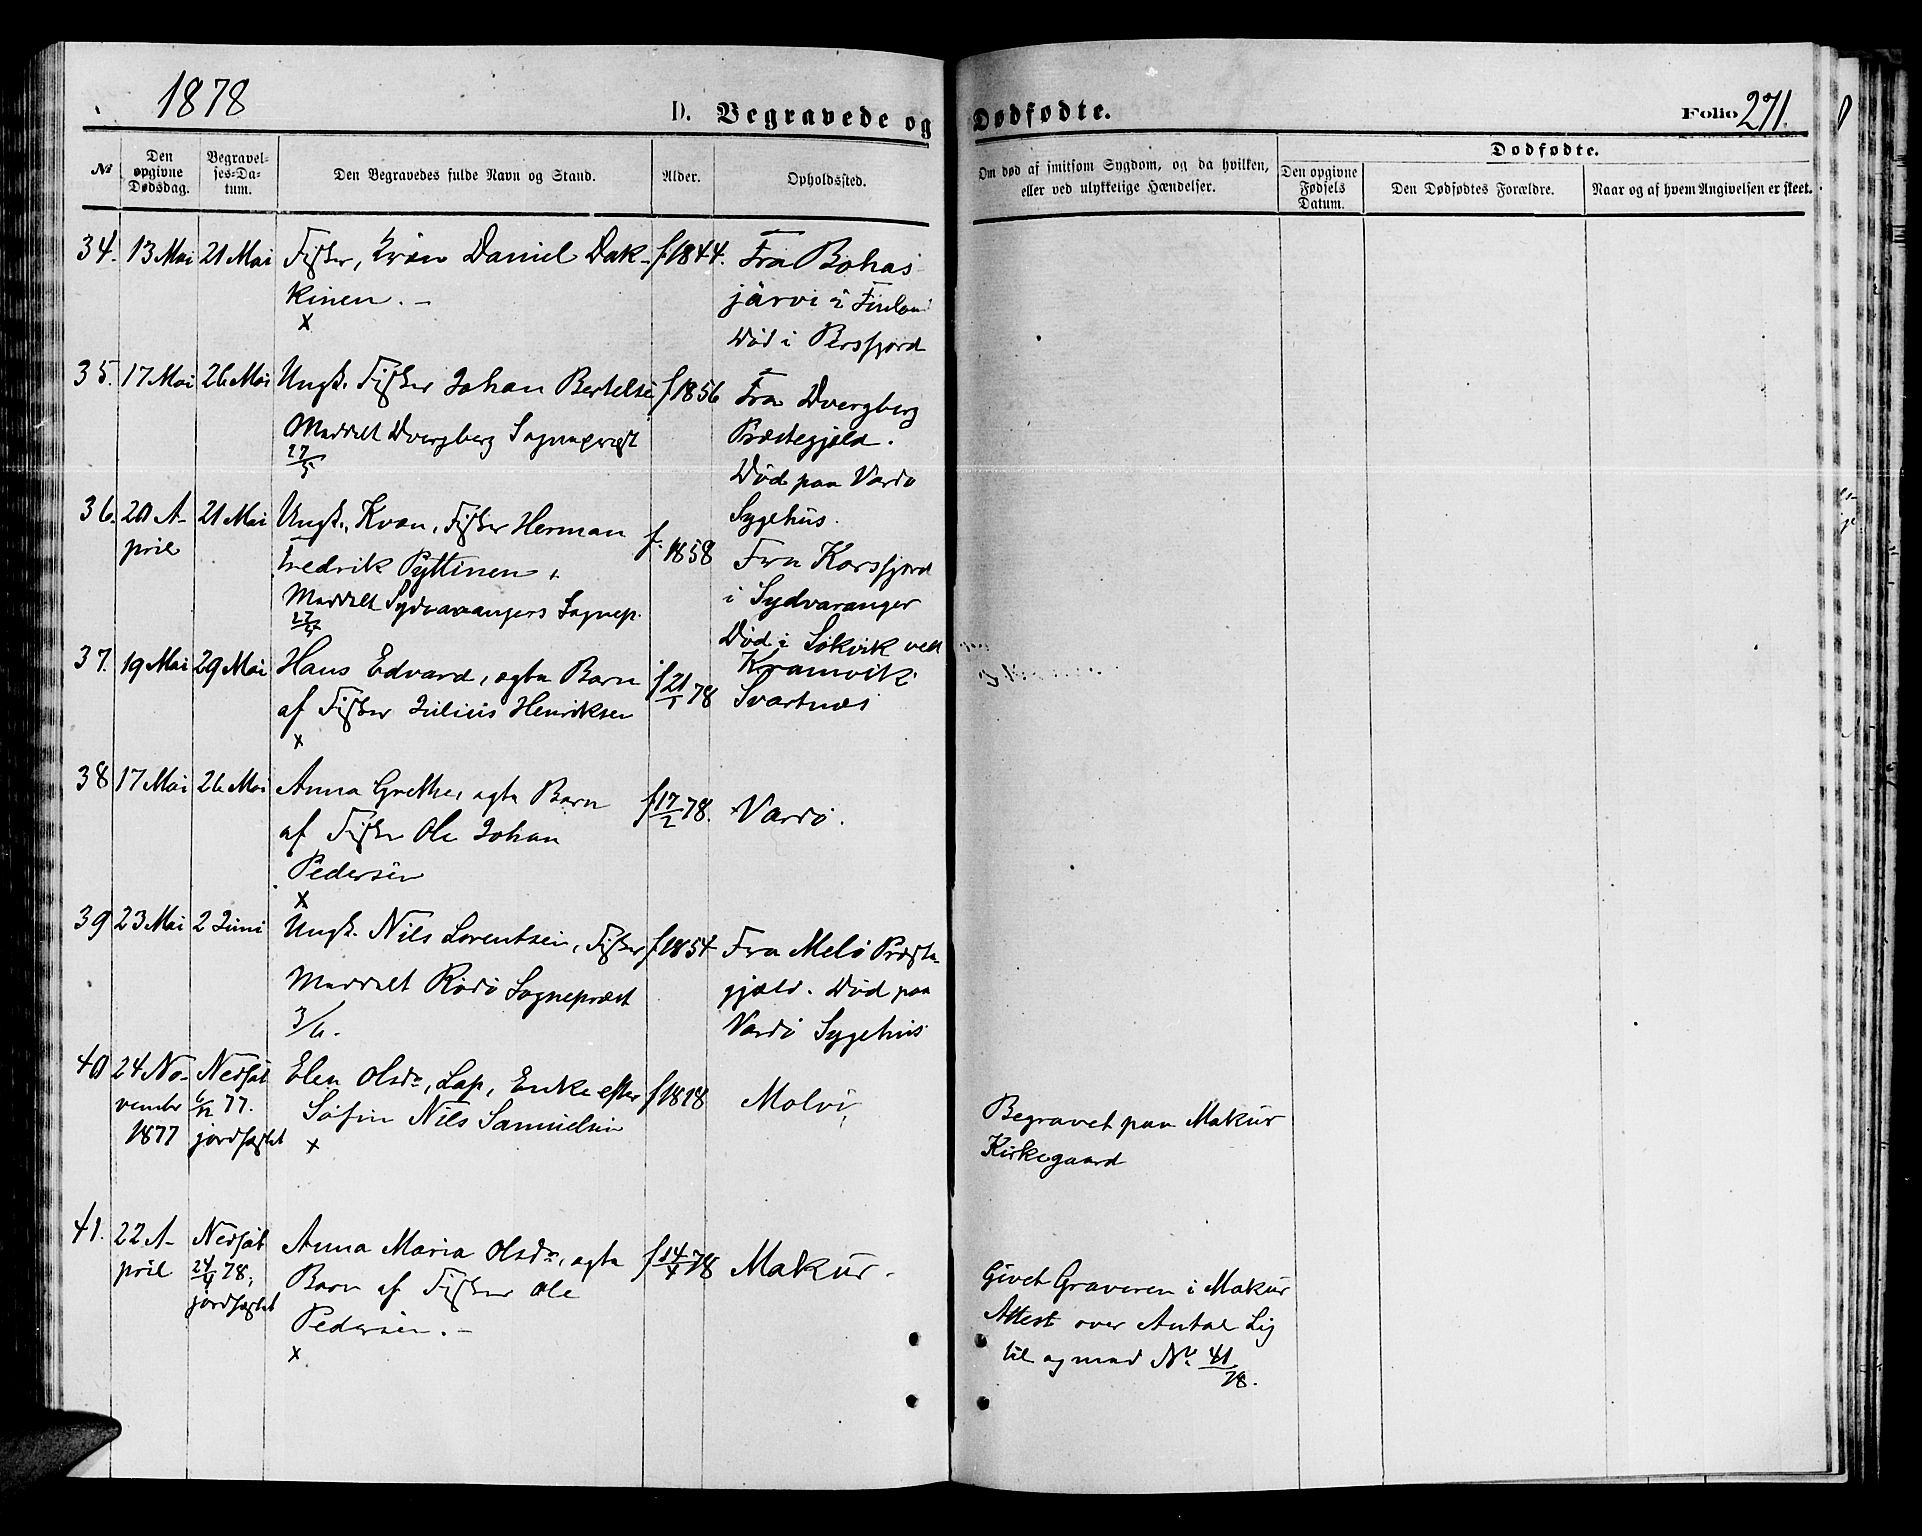 1878
D. Begravede og Dødfødte.
Folio 271.
No
Den opgivne Dødsdag.
Begravel-ses-Da-tum.
Den Begravedes fulde Navn og Stand.
Alder.
Opholdssted.
Om død af smitsom Sygdom, og da hvilken,
eller ved ulykkelige Hændelser.
Dødfødte.
Den opgivne Fødsels Datum.
Den Dødfødtes Forældre.
Naar og af hvem Angivelsen er skeet.
34. 13 Mai 21 Mai Fisker, Kvæn Daniel Dak- f. 1844. Fra Bohas
kinen. – järvi i Finland
x Død i Persfjord
35. 17 Mai 26 Mai Ungk. Fisker Johan Bertelsen f 1856 Fra Dvergberg
Meddelt Dvergberg Sognepræst Præstegjeld.
27/5 Død paa Vardø
Sygehus.
36. 20 A- 21 Mai Ungk., Kvæn, Fisker Herman f. 1858 Fra Korsfjord
pril Fredrik Pyttinen. i Sydvaranger
Meddelt Sydvarangers Sognep. Død i Sokvik ved
Kramvik
37. 19 Mai 29 Mai Hans Edvard, ægte Barn f 21/1 78 Svartnæs
af Fisker Julius Henriksen
x
38 17 Mai 26 Mai Anna Grethe, ægte Barn f 17/2 78. Vardø.
af Fisker Ole Johan
Pedersen
x
39 23 Mai 2 Juni Ungk. Nils Lorentsen, Fisker f 1854 Fra Melø Præste-
Meddelt Rødø Sognepræst gjæld. Død paa
3/6. Vardø Sygehus
40 24 No- Nedsat Elen Olsdr, Lap, Enke efter f 1818 Molvi
vember 6/12 77. Søfin Nils Samuelsen
1877 jordfæstet x
Begravet paa Makur
Kirkegaard
41. 22 A- Nedsat Anna Maria Olsdr, ægte f 14/4 78 Makur.
pril 24/4 78, Barn af Fisker Ole
jordfæstet Pedersen. –
x
Givet Graveren i Makur
Attest over Antal Lig
til og med No 41/78.